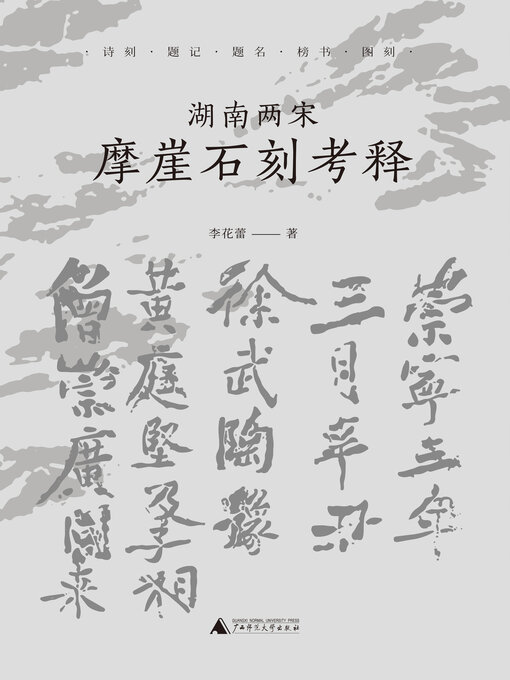 ·诗刻·题记·题名·榜书·图刻·
湖南两宋
摩崖石刻考释
李花蕾——著
崇寧三年
三月辛丑
徐武陶豫
黃庭堅及子相
僧崇廣同來
GUANGXI NORMAL UNIVERSITY PRESS
广西师范大学出版社